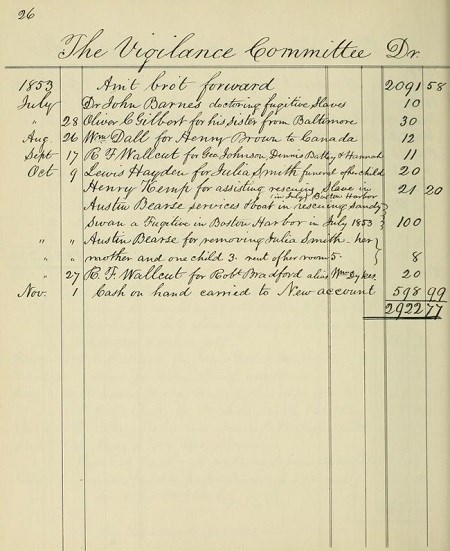 26
The Vigilance Committee Dr.
1853 Am't brot forward 2091 58
July Dr John Barnes doctoring fugitive Slaves 10
" 28 Oliver C Gilbert for his sister from Baltimore 30
Aug. 26 Wm Dall for Henry Brown to Canada 12
Sept 17 R. F. Wallcut for Geo Johnson, Dennis & Hannah 11
Oct 9 Lewis Hayden for Julia Smith funeral of her child 20
Henry Kemp for assisting rescuing Slave in 21 20
in July Boston Harbor
Austin Bearse services & boat in rescuing Sandy
Swan a Fugitive in Boston Harbor in July 1853 100
" " Austin Bearse for removing Julia Smith. her
" " mother and one child 3. rent of her room 5. 8
" 27 R. F. Wallcut for Robt Bradford alias Wm Dykes. 20
Nov. 1 Cash on hand carried to New account 598 99
2922 77